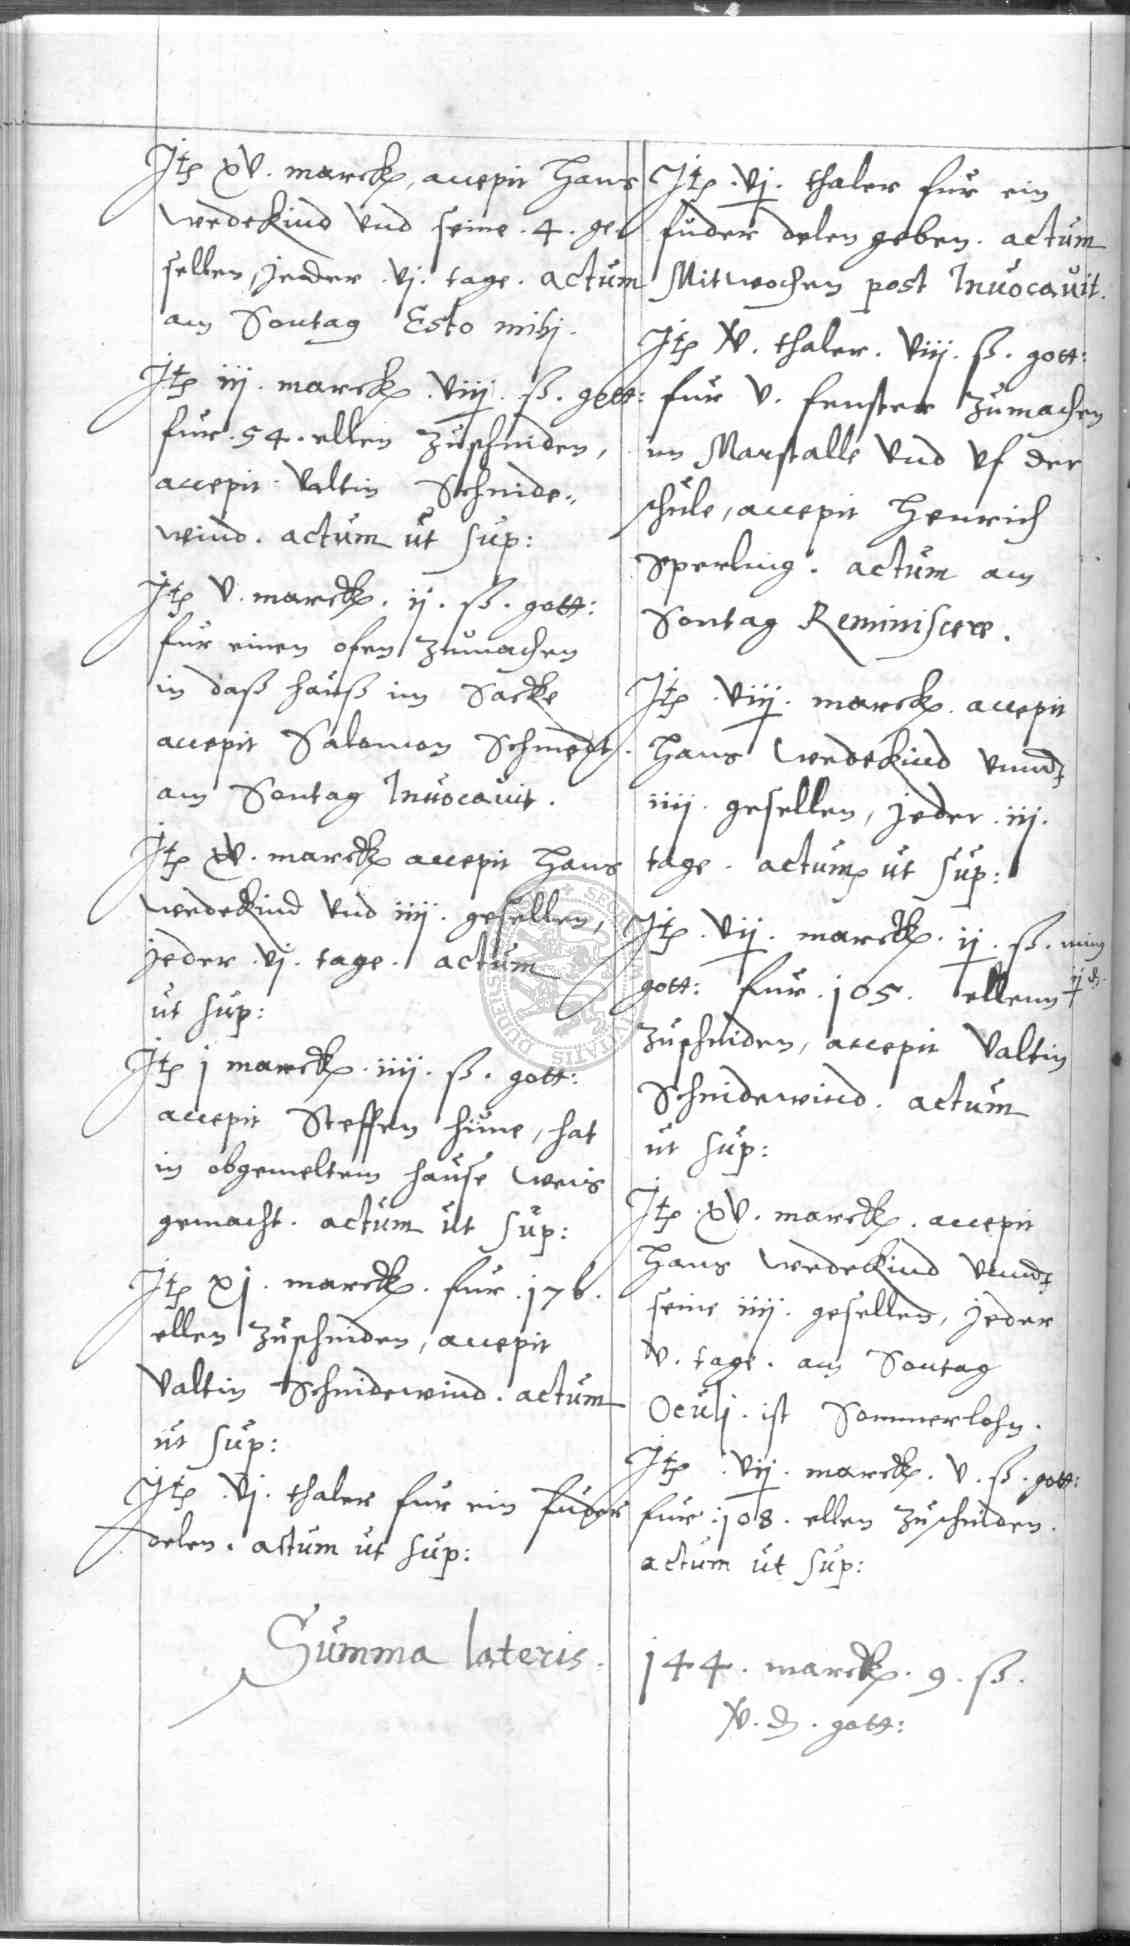 Jtz xv. marck, accepit Hans
Wedekind vnd seine .4. ge
sellen, jeder .vj. tage. actum
am Sontag Esto mihj.
Jtz iij. marck. viiij. ß. gott:
für .54. ellen zuschniden,
accepit Valtin Schnide„
wind. actum ut sup:
Jtz v. marck. ij. ß. gott:
für einen ofen zumachen
in daß hauß im Sacke
accepit Salomon Schmedt.
am Sontag Inuocauit.
Jtz xv. marck accepit Hans
Wedekind vnd iiij. gesellen,
jeder .vj. tage. actum
ut sup:
Jtz j marck. iiij. ß. gott:
accepit Steffen Hüne, hat
in obgemeltem hause weis
gemacht. actum ut sup:
Jtz xj. marck. für .176.
ellen zuschniden, accepit
Valtin Schnidewind. actum
ut sup:
Jtz .vj. thaler für ein fuder
delen. actum ut sup:
Summa lateris.
Jtz .vj. thaler für ein
fuder delen geben. actum
Mitwochen post Inuocauit.
Jtz xv. thaler. viij. ß. gott:
für v. fenster zumachen
im Marstalle vnd vf der
schule, accepit Henrich
Sperling. actum am
Sontag Reminiscere.
Jtz .viij. marck. accepit
Hans Wedekind vnndt
iiij. gesellen, jeder .iij.
tage. actum ut sup:
Jtz .vij. marck. ij. ß. ming
ij d.
gott: für .105. ellenn
zuschniden, accepit Valtin
Schnidewind. actum
ut sup:
Jtz .xv. marck. accepit
Hans Wedekind vnndt
seine iiij. gesellen, jeder
v. tage. am Sontag
Oculj. ist Sommerlohn.
Jtz .vij. marck. v. ß. gott:
für .108. ellen zuschniden.
actum ut sup:
144. marck. 9. ß.
xv. d. gott: